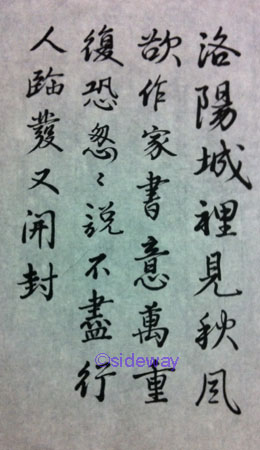 洛陽城裡見秋風
欲作家書意萬重
復恐怱〻說不盡行
人臨發又開封
©sideway